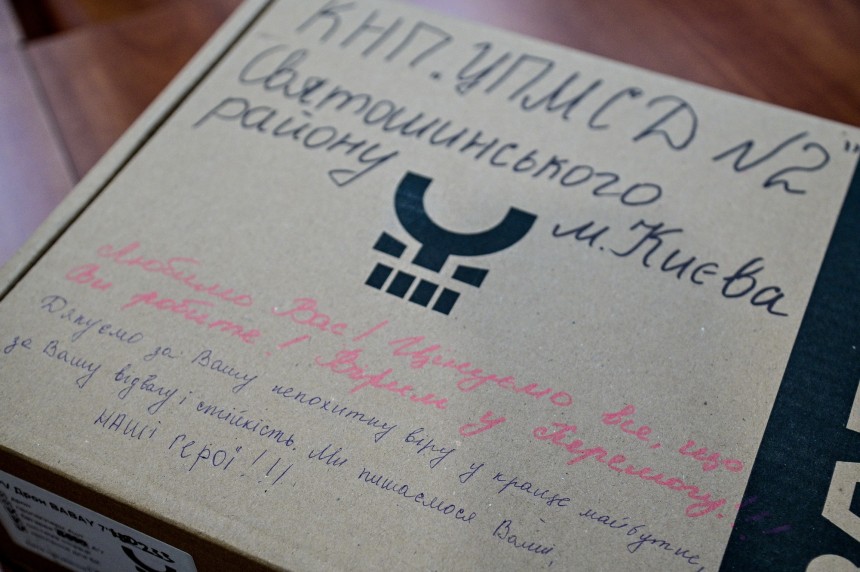 КНП. ЦПМСД №2"
Святошинського
району
м. Києва
Любимо Вас! Цінуємо все, що
Ви робите! Віримо у Перемогу!!!
Дякуємо за Вашу непохитну віру у краще майбутнє,
за Вашу відвагу і стійкість. Ми пишаємося Вами,
НАШІ Герої!!!
Дрон BABAY